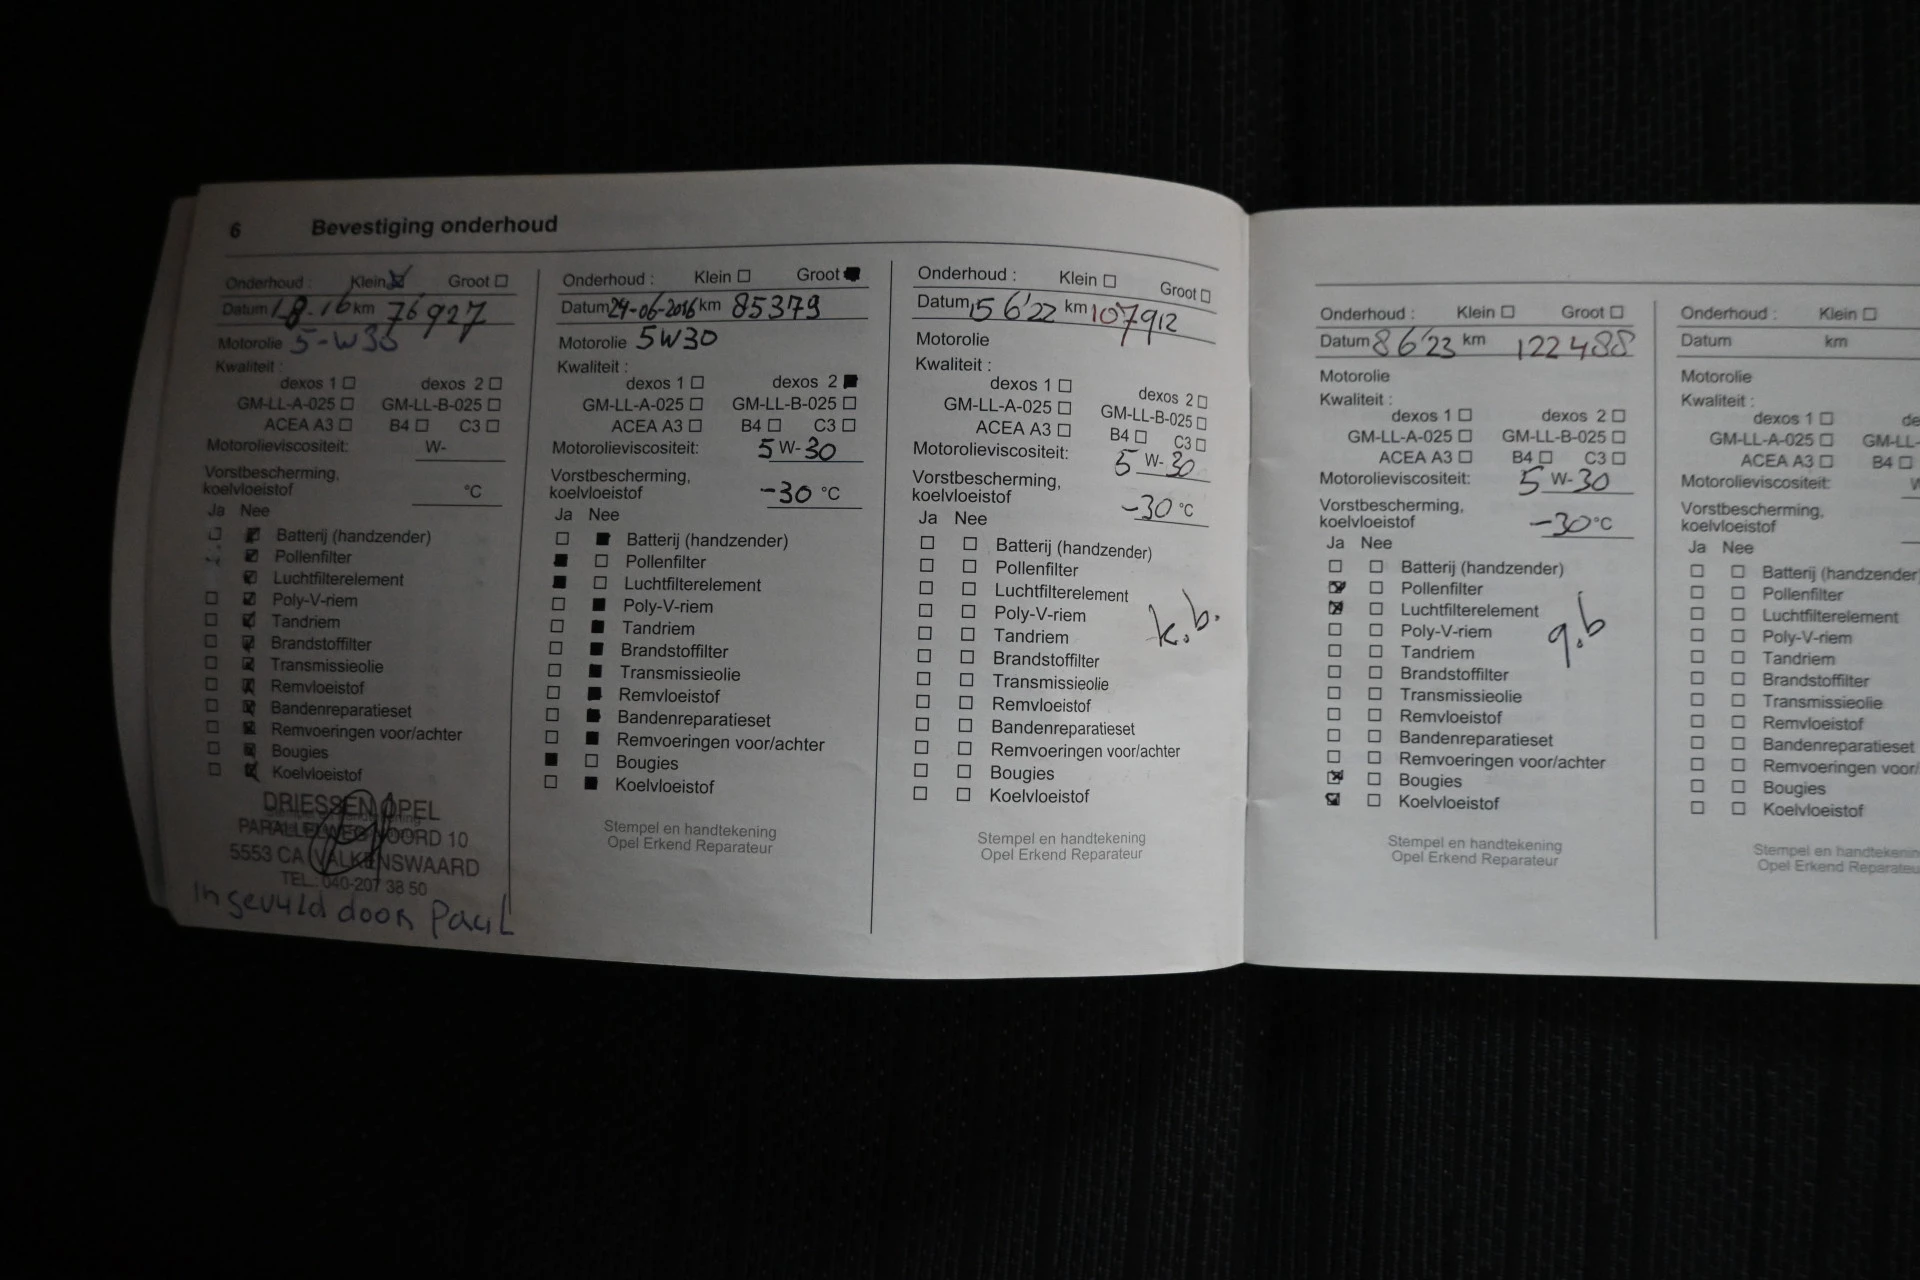 6 Bevestiging onderhoud
Onderhoud : Klein Groot
Datum 1-8-16 km 76927
Motorolie 5-W30
Kwaliteit :
dexos 1 dexos 2
GM-LL-A-025 GM-LL-B-025
ACEA A3 B4 C3
Motorolieviscositeit: W-
Vorstbescherming,
koelvloeistof °C
Ja Nee
Batterij (handzender)
Pollenfilter
Luchtfilterelement
Poly-V-riem
Tandriem
Brandstoffilter
Transmissieolie
Remvloeistof
Bandenreparatieset
Remvoeringen voor/achter
Bougies
Koelvloeistof
DRIESSEN OPEL
PARALLELWEG NOORD 10
5553 CA VALKENSWAARD
TEL. 040-207 38 50
Ingevuld door Paul
Onderhoud : Klein Groot
Datum 24-06-2016 km 85379
Motorolie 5W30
Kwaliteit :
dexos 1 dexos 2
GM-LL-A-025 GM-LL-B-025
ACEA A3 B4 C3
Motorolieviscositeit: 5 W-30
Vorstbescherming,
koelvloeistof -30 °C
Ja Nee
Batterij (handzender)
Pollenfilter
Luchtfilterelement
Poly-V-riem
Tandriem
Brandstoffilter
Transmissieolie
Remvloeistof
Bandenreparatieset
Remvoeringen voor/achter
Bougies
Koelvloeistof
Stempel en handtekening
Opel Erkend Reparateur
Onderhoud : Klein Groot
Datum 15 6'22 km 107912
Motorolie
Kwaliteit :
dexos 1 dexos 2
GM-LL-A-025 GM-LL-B-025
ACEA A3 B4 C3
Motorolieviscositeit: 5 W-30
Vorstbescherming,
koelvloeistof -30 °C
Ja Nee
Batterij (handzender)
Pollenfilter
Luchtfilterelement
Poly-V-riem
k.b.
Tandriem
Brandstoffilter
Transmissieolie
Remvloeistof
Bandenreparatieset
Remvoeringen voor/achter
Bougies
Koelvloeistof
Stempel en handtekening
Opel Erkend Reparateur
Onderhoud : Klein Groot
Datum 8 6'23 km 122488
Motorolie
Kwaliteit :
dexos 1 dexos 2
GM-LL-A-025 GM-LL-B-025
ACEA A3 B4 C3
Motorolieviscositeit: 5 W-30
Vorstbescherming,
koelvloeistof -30 °C
Ja Nee
Batterij (handzender)
Pollenfilter
Luchtfilterelement
Poly-V-riem
g.b
Tandriem
Brandstoffilter
Transmissieolie
Remvloeistof
Bandenreparatieset
Remvoeringen voor/achter
Bougies
Koelvloeistof
Stempel en handtekening
Opel Erkend Reparateur
Onderhoud : Klein
Datum km
Motorolie
Kwaliteit :
dexos 1 de
GM-LL-A-025 GM-LL-
ACEA A3 B4
Motorolieviscositeit: W
Vorstbescherming,
koelvloeistof
Ja Nee
Batterij (handzender
Pollenfilter
Luchtfilterelement
Poly-V-riem
Tandriem
Brandstoffilter
Transmissieolie
Remvloeistof
Bandenreparatieset
Remvoeringen voor/
Bougies
Koelvloeistof
Stempel en handtekenin
Opel Erkend Reparateu